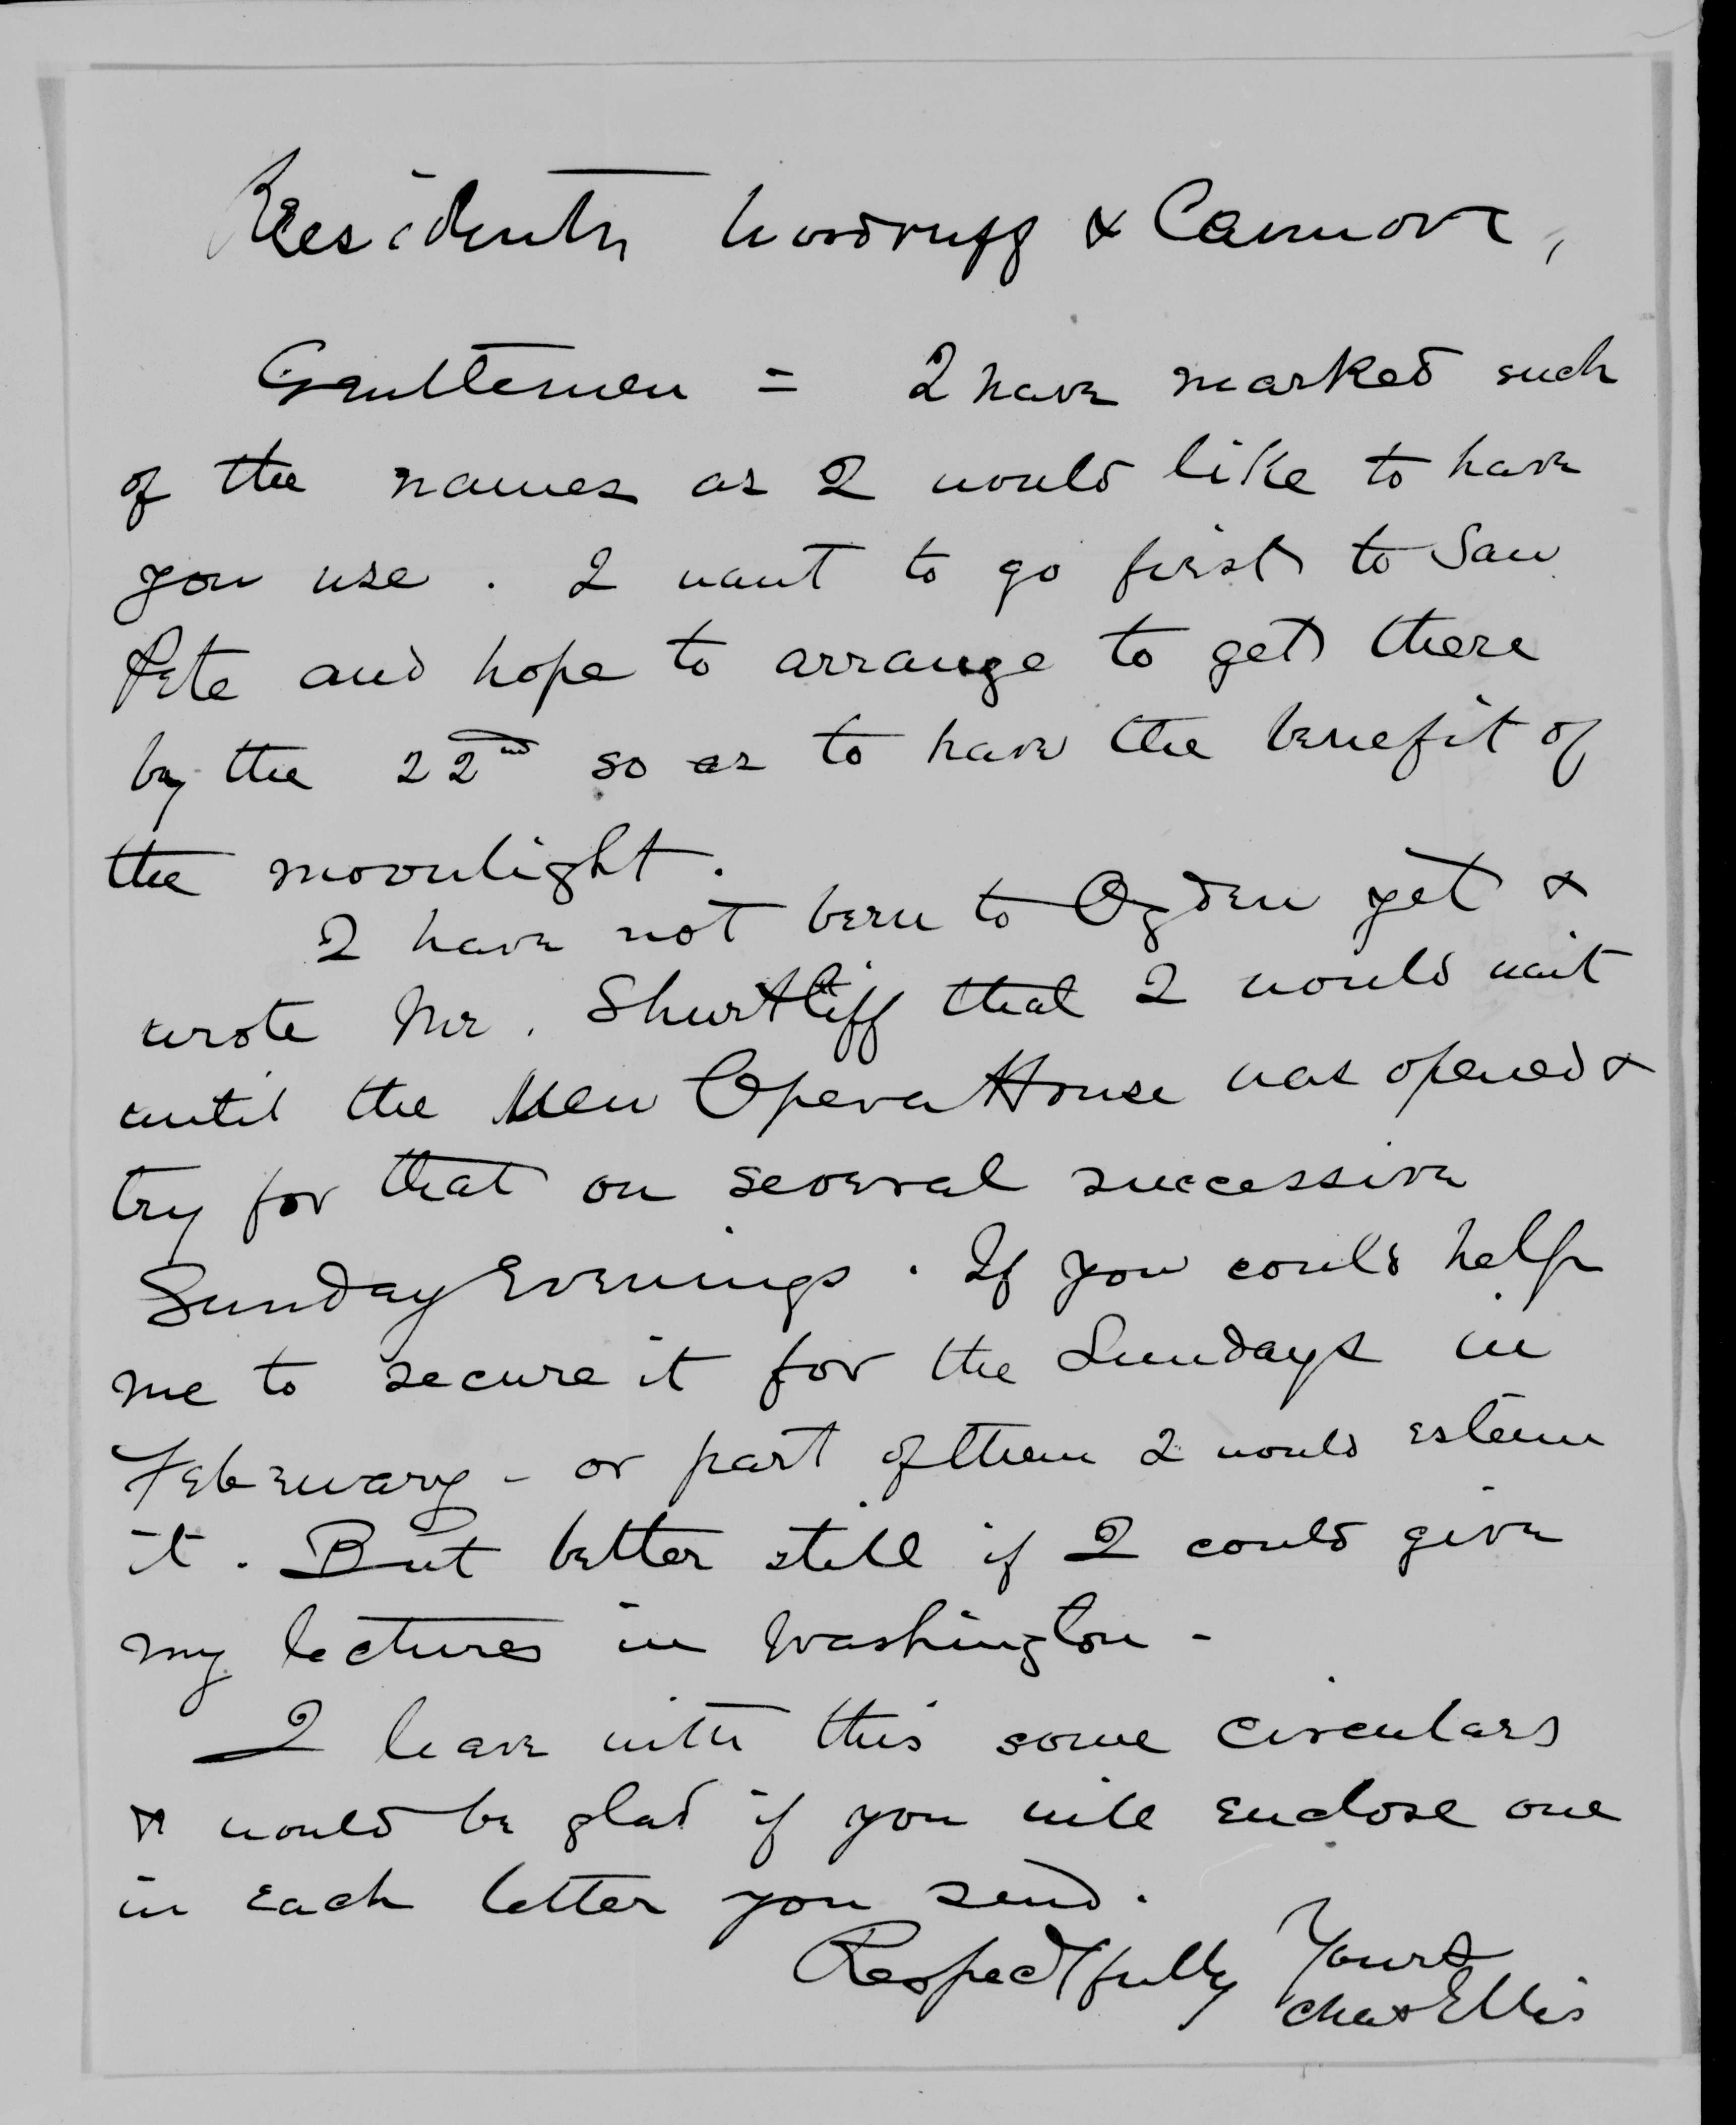 Presidents Woodruff & Cannon,
Gentlemen = I have marked such
of the names as I would like to have
you use. I want to go first to San
Pete and hope to arrange to get there
by the 22nd so as to have the benefit of
the moonlight.
I have not been to Ogden yet &
wrote Mr. Shurtliff that I would wait
until the New Opera House was opened &
try for that on several successive
Sunday Evenings. If you could help
me to secure it for the Sundays in
February - or part of them I would esteem
it. But better still if I could give
my lectures in Washington -
I leave with this some circulars
& would be glad if you will enclose one
in each letter you send.
Respectfully Yours
Chas Ellis